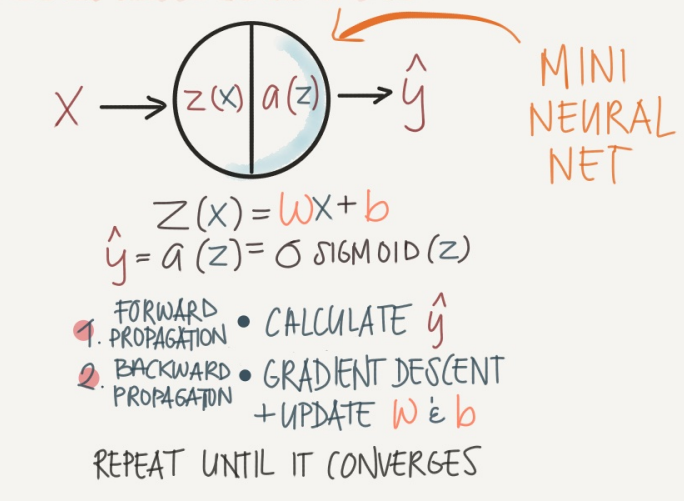 X → z(x) | a(z) → ŷ
MINI
NEURAL
NET
Z(x) = Wx + b
ŷ = a(z) = σ SIGMOID(z)
1. FORWARD PROPAGATION • CALCULATE ŷ
2. BACKWARD PROPAGATION • GRADIENT DESCENT
+ UPDATE W & b
REPEAT UNTIL IT CONVERGES